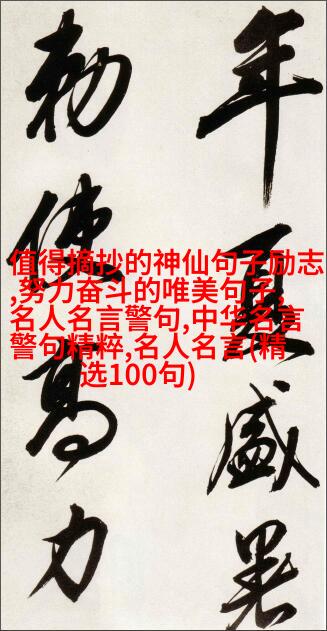 年夏盛暑
勅使高力
值得摘抄的神仙句子励志
,努力奋斗的唯美句子,
名人名言警句,中华名言
警句精粹,名人名言(精
选100句)